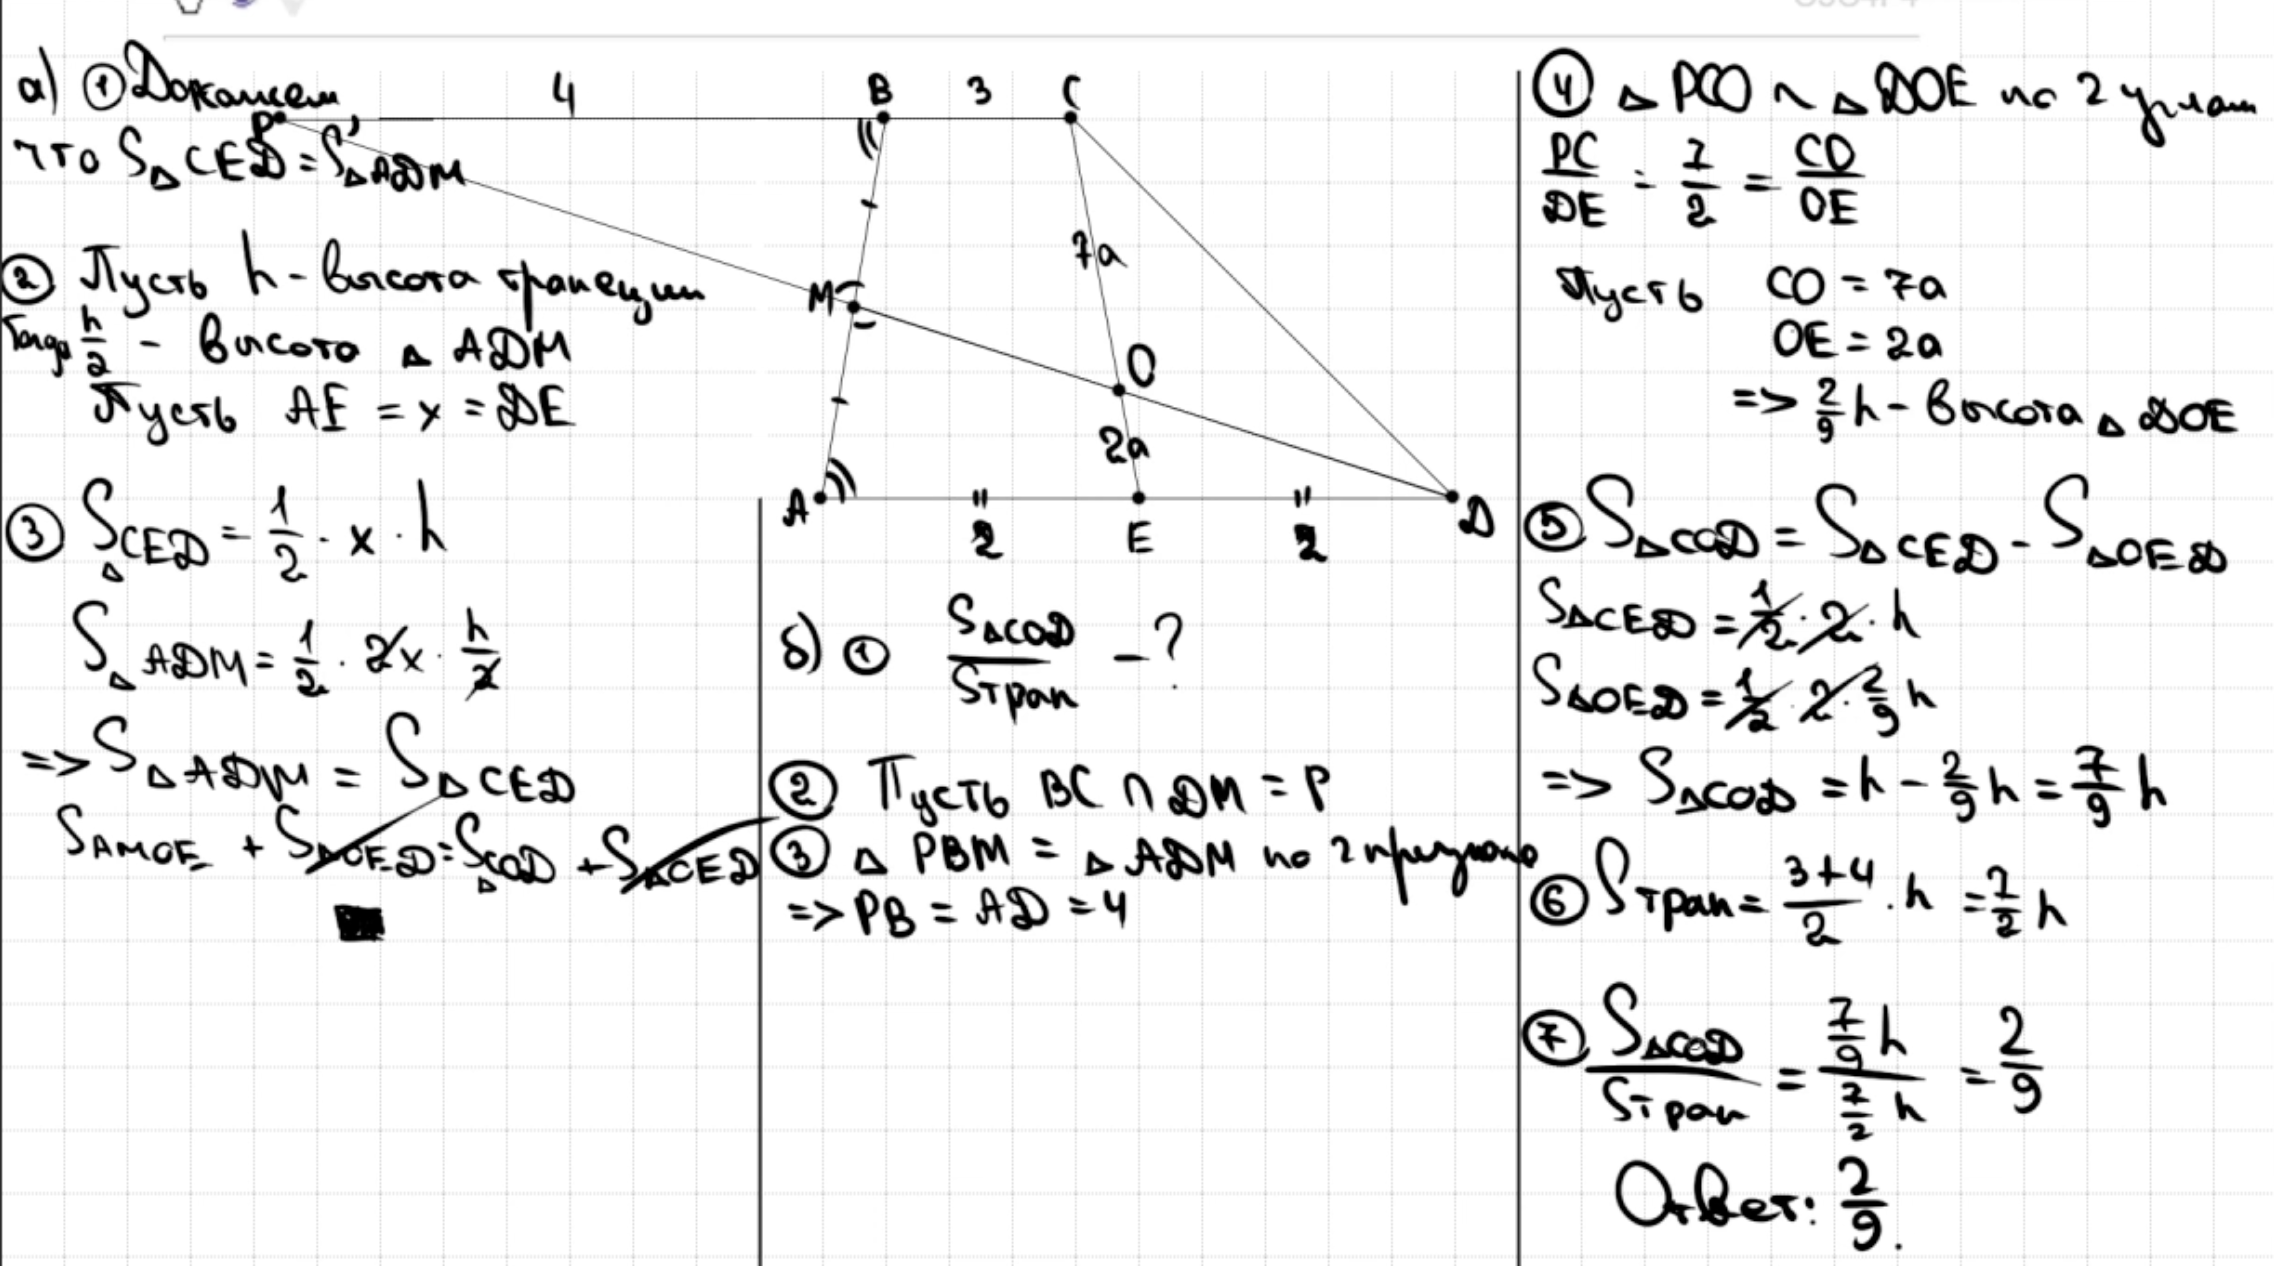 а) ① Докажем,
что S△CED = S△ADM
② Пусть h - высота трапеции
Тогда h/2 - высота △ ADM
Пусть AE = x = DE
③ S△CED = 1/2 · x · h
S△ADM = 1/2 · 2x · h/2
=> S△ADM = S△CED
SAMOE + S△OED = S△COD + S△CED
P
4
B
3
C
7a
M
O
2a
A
2
E
2
D
б) ① S△COD/Sтрап - ?
② Пусть BC ∩ DM = P
③ △ PBM = △ ADM по 2 признаку
=> PB = AD = 4
④ △ PCO ~ △ DOE по 2 углам
PC/DE = 7/2 = CO/OE
Пусть CO = 7a
OE = 2a
=> 2/9 h - высота △ DOE
⑤ S△COD = S△CED - S△OED
S△CED = 1/2 · 2 · h
S△OED = 1/2 · 2 · 2/9 h
=> S△COD = h - 2/9 h = 7/9 h
⑥ Sтрап = (3+4)/2 · h = 7/2 h
⑦ S△COD/Sтрап = (7/9 h)/(7/2 h) = 2/9
Ответ: 2/9.